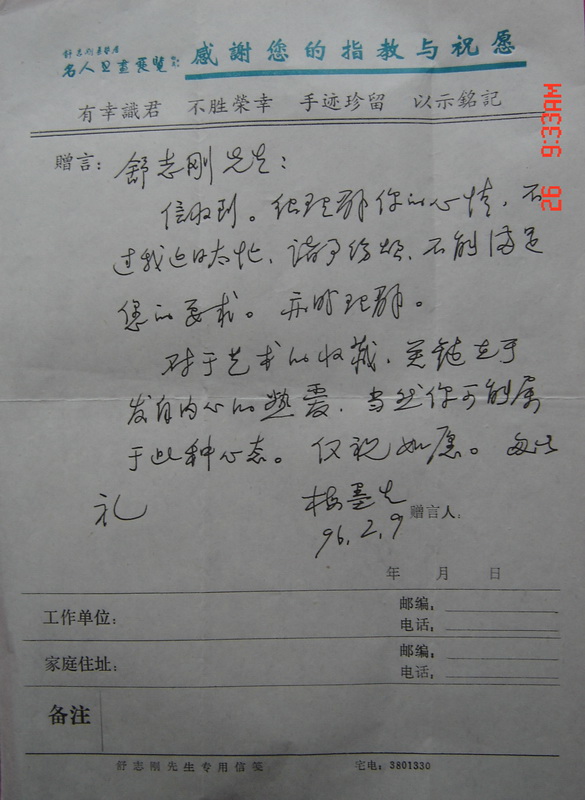 感謝您的指教与祝愿
有幸識君 不胜榮幸 手迹珍留 以示銘記
26 9:33AM
赠言： 舒志刚先生：
信收到。很理解你的心情，不
过我近日太忙，诸事纷烦，不能满足
您的要求。亦盼理解。
对于艺术的收藏，关键在于
发自内心的热爱，当然你可能属
于此种心态。仅祝如愿。
礼
梅墨生
赠言人：
96.2.9
年 月 日
工作单位：
邮编：
电话：
家庭住址：
邮编：
电话：
备注
舒志刚先生专用信笺 宅电：3801330